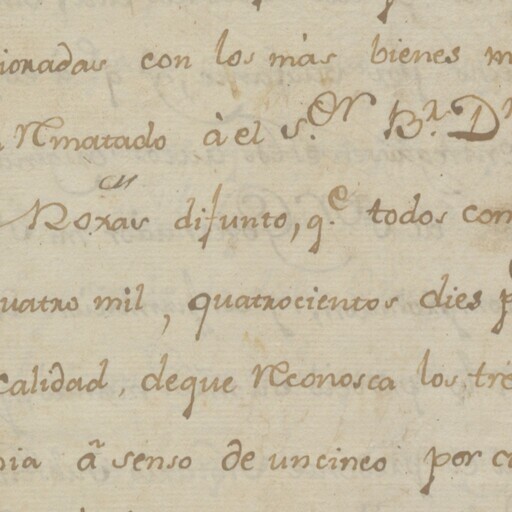 ionadas con los màs bienes m
Rmatado à el S.or Br. Dn
Roxas difunto, q.e todos com
uatro mil, quatrocientos dies p
calidad, deque Rconosca los tre
bia a senso de uncinco por ci